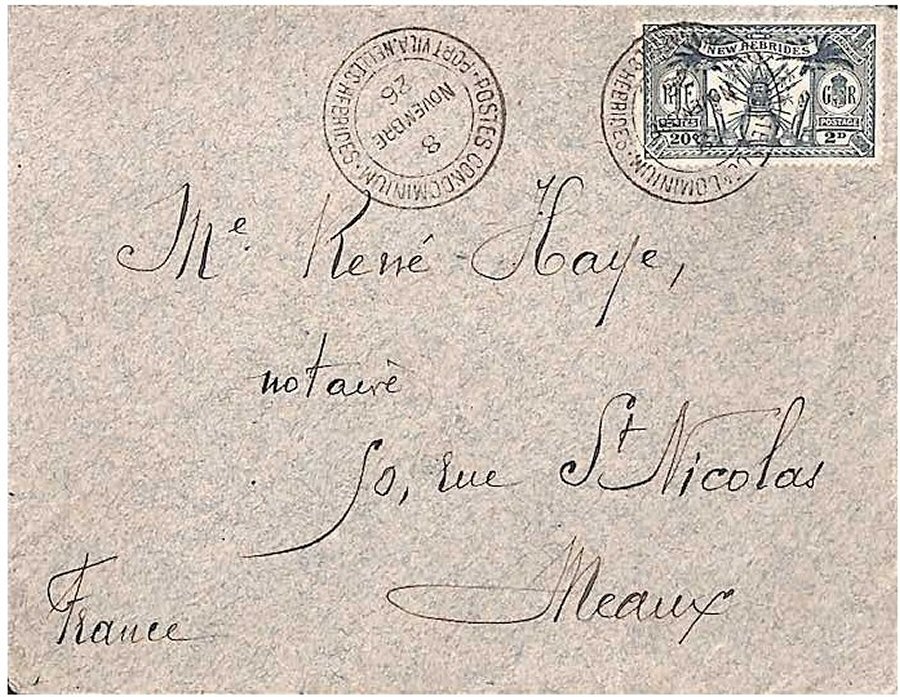 POSTES CONDOMINIUM · PORT VILA, NELLES HEBRIDES ·
8
NOVEMBRE
26
NEW HEBRIDES
RF
GR
POSTES
POSTAGE
20c
2D
Me René Haye,
notaire
50, rue St Nicolas
Meaux
France